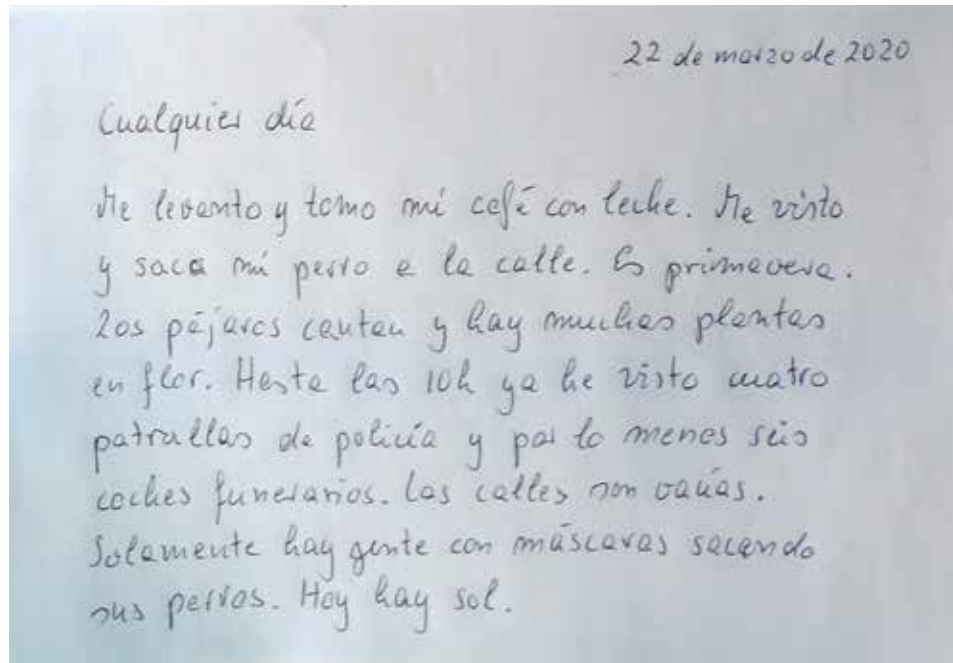 22 de marzo de 2020
Cualquier día
Me levanto y tomo mi café con leche. Me visto
y saca mi perro a la calle. Es primavera.
Los pájaros cantan y hay muchas plantas
en flor. Hasta las 10h ya he visto cuatro
patrullas de policía y por lo menos seis
coches funerarios. Las calles son vacías.
Solamente hay gente con máscaras sacando
sus perros. Hoy hay sol.